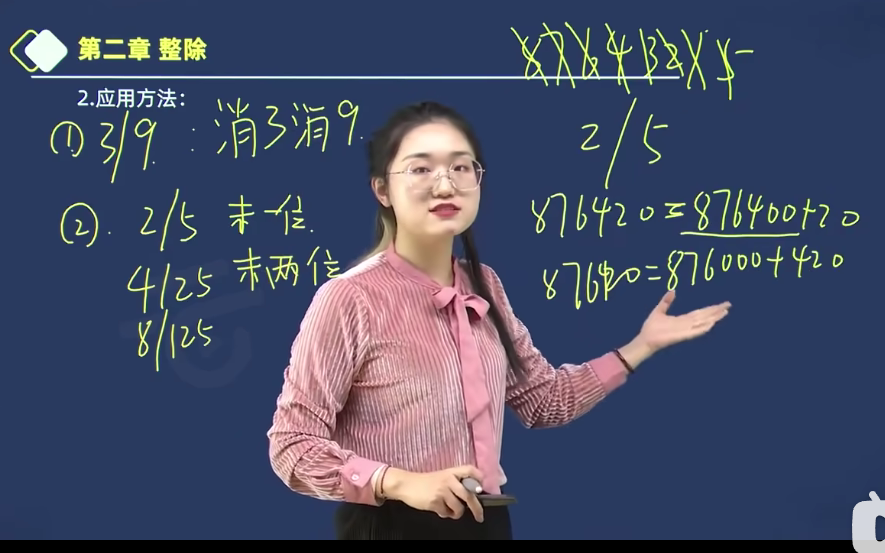 第二章 整除
2.应用方法：
① 3/9：消3消9.
②. 2/5 末一位.
4/25 末两位
8/125
2/5
876420=876400+20
876420=876000+420